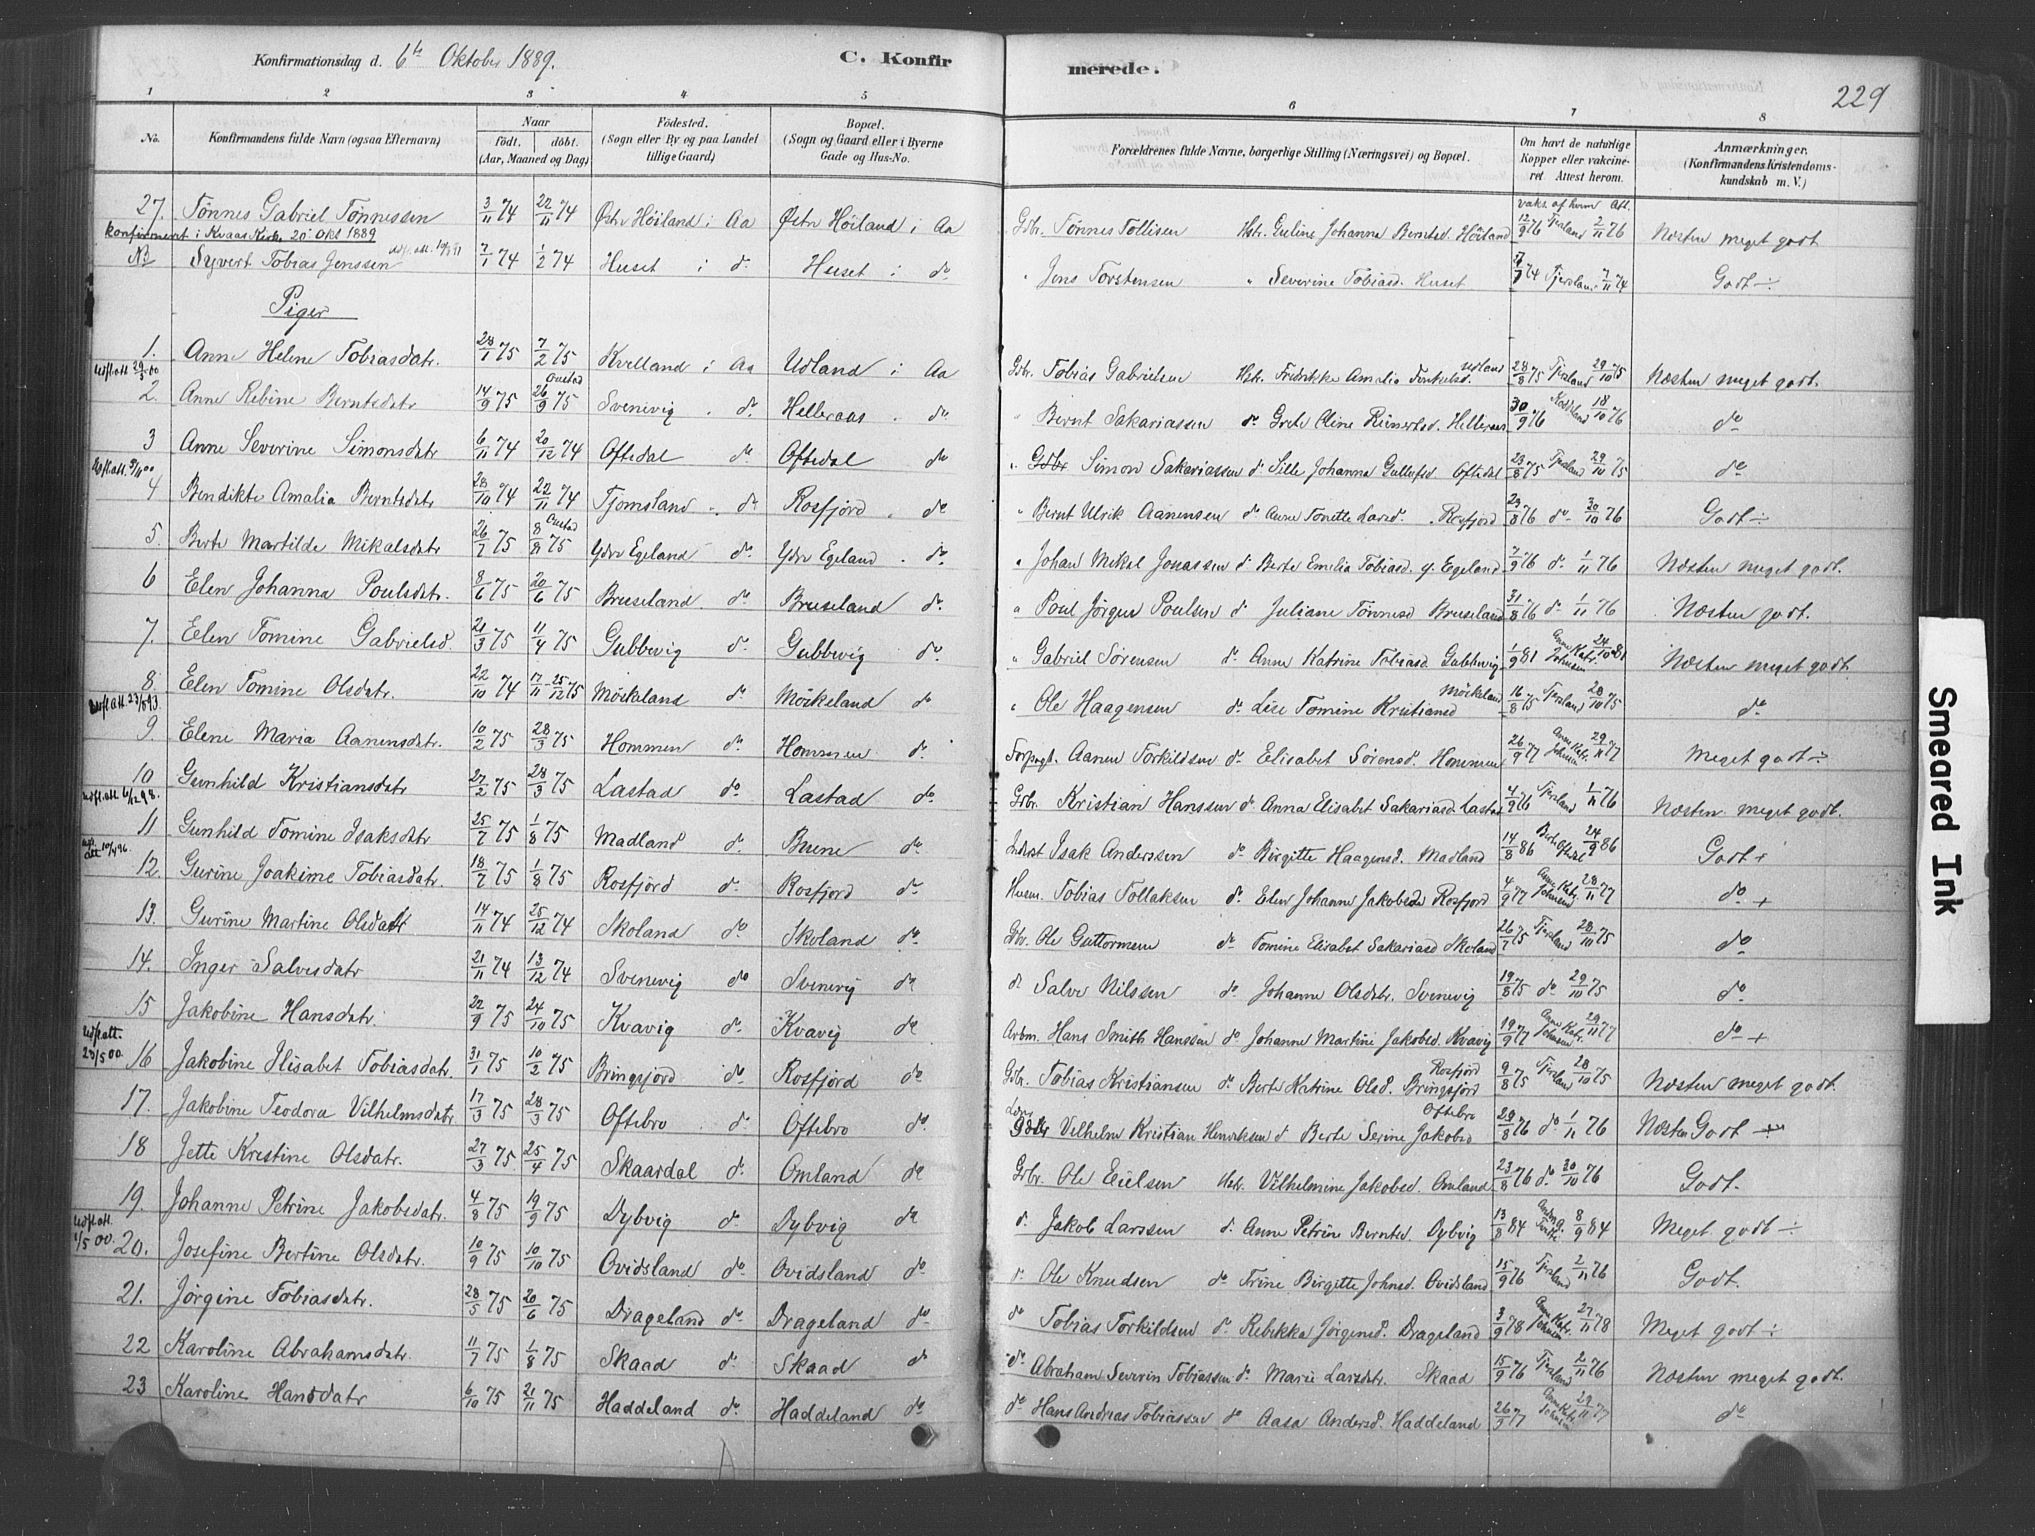 Konfirmationsdag d. 6te Oktober 1889. C. Konfirmerede. 229
1 2 3 4 5 6 7 8
No. Konfirmandens fulde Navn (ogsaa Efternavn) Naar födt. döbt. (Aar, Maaned og Dag) Födested. (Sogn eller By og paa Landet tillige Gaard) Bopæl. (Sogn og Gaard eller i Byerne Gade og Hus-No. Forældrenes fulde Navne, borgerlige Stilling (Næringsvei) og Bopæl. Om havt de naturlige Kopper eller vakcineret. Attest herom. Anmærkninger. (Konfirmandens Kristendomskundskab m. V.)
vaks. af hvem Att.
27. Tønnes Gabriel Tønnessen 3/11 74 22/11 74 Østr Höiland i Aa Østr Höiland i Aa Gbr. Tønnes Tollisen Hstr. Guline Johanna Berntsd. Höiland 12/9 76 Tjersland 2/11 76 Næsten meget godt
konfirmeret i Kvaas Kirke 20' Okt 1889
N3 Syvert Tobias Jenssen 7/1 74 1/2 74 Huset i do Huset i do " Jens Torstensen " Severine Tobiasd. Huset 7/11 74 Godt ÷
Piger
1. Anne Helene Tobiasdatr. 28/1 75 7/2 75 Kvelland i Aa Udland i Aa Gbr. Tobias Gabrielsen Hstr. Fredrikke Amalia Tönkelsd. Udland 28/8 75 Tjersland 29/10 75 Næsten meget godt.
Udfl. att 29/3 00
2. Anne Rebine Berntsdatr 14/9 75 26/9 75 Svenevig " do Helleraas " do " Bernt Sakariassen do Grete Oline Reinertsd. Helleraas 30/9 76 18/10 76 do
3 Anne Severine Simonsdatr 6/11 74 20/12 74 Oftedal do Oftedal do " Simon Sakariassen do Sille Johanna Gullufsd Oftedal 23/8 75 Tjersland 29/10 75 do
4 Bendikte Amalia Berntsdatr 28/10 74 22/11 74 Tjomsland " do Rosfjord " do " Bernt Ulrik Aanensen do Anne Tonette Larsd. Rosfjord 23/8 76 do 30/10 76 Godt ÷
5. Berte Martilde Mikalsdatr 26/7 75 8/8 75 Ydre Egeland do Ydre Egeland " do " Johan Mikal Jonassen do Berte Emelia Tobiasd. y. Egeland 7/9 76 do 1/11 76 Næsten meget godt.
6 Elen Johanna Poulsdatr. 8/6 75 20/6 75 Bruseland do Bruseland do " Poul Jörgen Poulsen do Juliane Tönnesd Bruseland 31/8 76 do 1/11 76 Næsten godt.
7. Elen Tomine Gabrielsd. 21/3 75 11/4 75 Gubbevig do Gubbevig do " Gabriel Sörensen do Anne Katrine Tobiasd Gubbevig 1/9 81 Anne Katr. Johnsen 24/10 81 Næsten meget godt
8. Elen Tomine Olsdatr. 22/10 74 17/11 - 25/12 75 Möskeland do Möskeland do " Ole Haagensen do Lise Tomine Kristiansd Möskeland 16/8 75 Tjersland 28/10 75 do
Udfl. att. 23/5 93.
9. Elene Maria Aanensdatr. 10/2 75 28/3 75 Hommen do Hommen do Forpagt. Aanen Torkildsen do Elisabet Sörensd. Hommen 26/9 77 Anne Katr. Johnsen 29/11 77 Meget godt ÷
10 Gunhild Kristiansdatr 27/2 75 28/3 75 Lastad do Lastad do Gbr. Kristian Hanssen do Anna Elisabet Sakariasd Lastad 4/9 76 Tjersland 1/11 76 Næsten meget godt.
Udfl. att. 6/12 98.
11 Gunhild Tomine Isaksdatr 25/7 75 1/8 75 Madland do Buene do Isak Anderssen do Birgitte Haagensd. Madland 14/8 86 24/9 86 Godt +
12. Gurine Joakime Tobiasdatr. 18/7 75 1/8 75 Rosfjord do Rosfjord do Husm. Tobias Tollaksen do Elen Johanne Jakobsd. Rosfjord 4/9 77 Anne Katr. Johnsen 28/11 77 do +
13. Gurine Martine Olsdatr 14/11 74 25/12 74 Skoland do Skoland do Gbr. Ole Guttormsen do Tomine Elisabet Sakariasd Skoland 26/7 75 Tjersland 28/10 75 do
14. Inger Salvesdatr 21/11 74 13/12 74 Svenevig do Svenevig do do Salve Nilssen do Johanne Olsdatr. Svenevig 19/8 75 do 29/10 75 do
15 Jakobine Hansdatr. 22/9 75 24/10 75 Kvavig do Kvavig do Arbm. Hans Smith Hanssen do Johanne Martine Jakobsd. Kvavig 19/9 77 Anne Katr. Johnsen 29/11 77 do +
Udfl. att. 23/5 00.
16 Jakobine Ilisabet Tobiasdatr. 31/1 75 10/2 75 Bringsjord do Rosfjord do Gbr. Tobias Kristiansen do Berte Katrine Olsd. Bringsjord Rosfjord 9/8 75 Tjersland 28/10 75 Næsten meget godt.
17. Jakobine Teodora Vilhelmsdatr 17/3 75 28/3 75 Oftebro do Oftebro do Vilhelm Kristian Henriksen do Berte Serine Jakobsd Oftebro 29/8 76 do 1/11 76 Næsten Godt
18 Jette Kristine Olsdatr. 27/3 75 25/4 75 Skaardal do Omland do Gbr. Ole Eielsen Hstr. Vilhelmine Jakobsd. Omland 23/8 76 do 30/10 76 Godt.
19. Johanne Petrine Jakobsdatr. 4/8 75 19/9 75 Dybvig do Dybvig do do Jakob Larssen do Anne Petrine Berntsd. Dybvig 13/8 84 8/9 84 Meget godt ÷
Udfl. att. 1/5 00.
20. Josefine Bertine Olsdatr. 10/9 75 10/10 75 Ovidsland do Ovidsland do do Ole Knudsen do Trine Birgitte Johnsd. Ovidsland 15/9 76 Tjersland 2/11 76 Godt.
21. Jörgine Tobiasdatr. 28/5 75 20/6 75 Drageland do Drageland do do Tobias Torkildsen do Rebekka Jörgensd. Drageland 3/9 78 Anne Katr. Johnsen 27/11 78 Meget godt ÷
22 Karoline Abrahamsdatr. 11/7 75 1/8 75 Skaad do Skaad do do Abraham Severin Tobiassen do Marie Larsdtr. Skaad 15/9 76 Tjersland 2/11 76 Næsten meget godt.
23 Karoline Hansdatr 6/10 75 21/11 75 Haddeland do Haddeland do do Hans Andreas Tobiassen do Aasa Andersd. Haddeland 26/9 77 Anne Katr. Johnsen 29/11 77 do
Smeared Ink